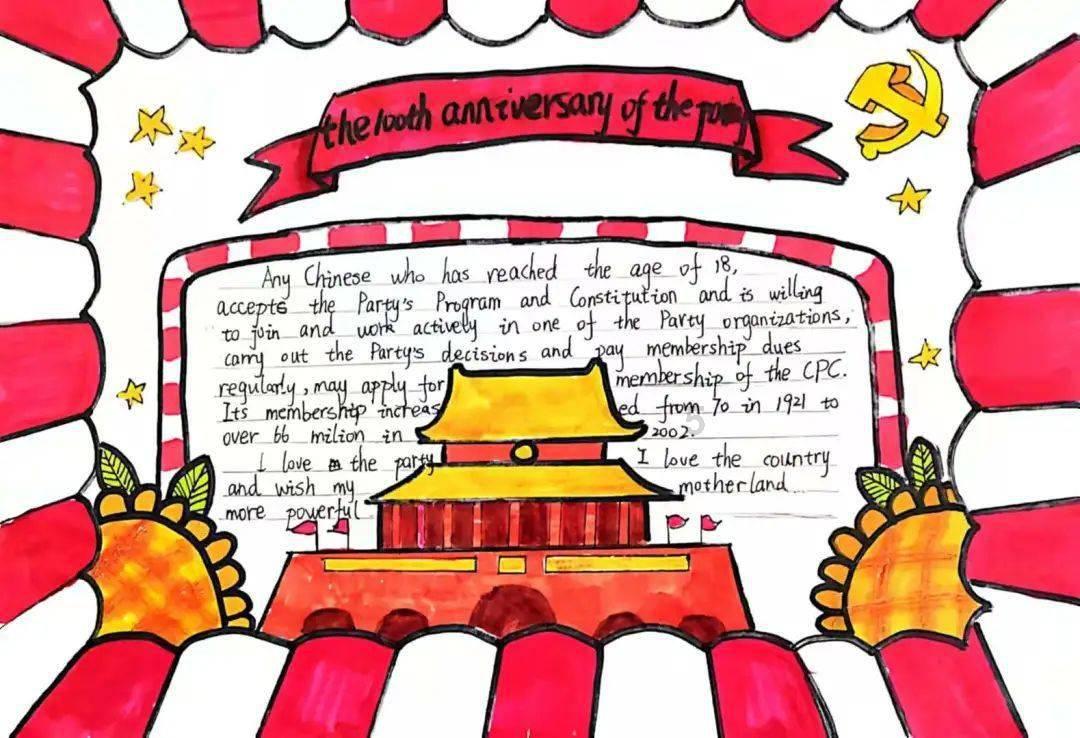 the 100th anniversary of the party
Any Chinese who has reached the age of 18,
accepts the Party's Program and Constitution and is willing
to join and work actively in one of the Party organizations,
carry out the Party's decisions and pay membership dues
regularly, may apply for membership of the CPC.
Its membership increased from 70 in 1921 to
over 66 milion in 2002.
I love the party I love the country
and wish my motherland
more powerful